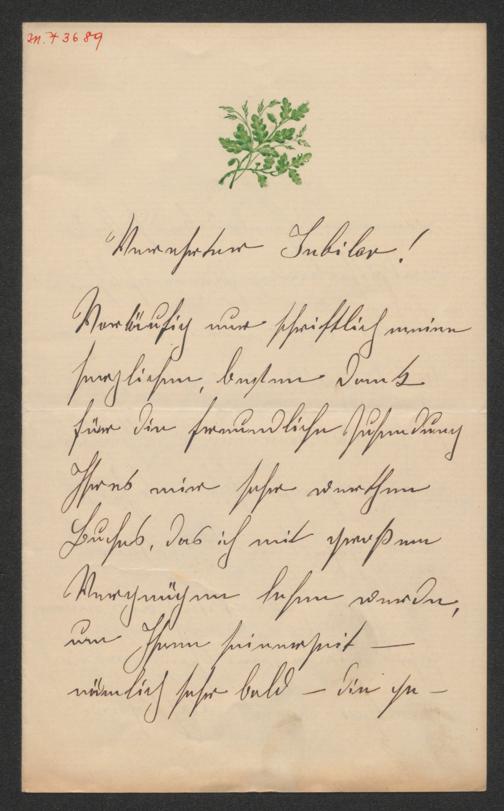 Verehrter Jubilar!
Vorläufig nur schriftlich meinen
herzlichen, besten Dank
für die freundliche Zusendung
Ihres mir sehr werthen
Buches, das ich mit großem
Vergnügen lesen werde,
um Ihnen seinerzeit —
nämlich sehr bald — die ge-